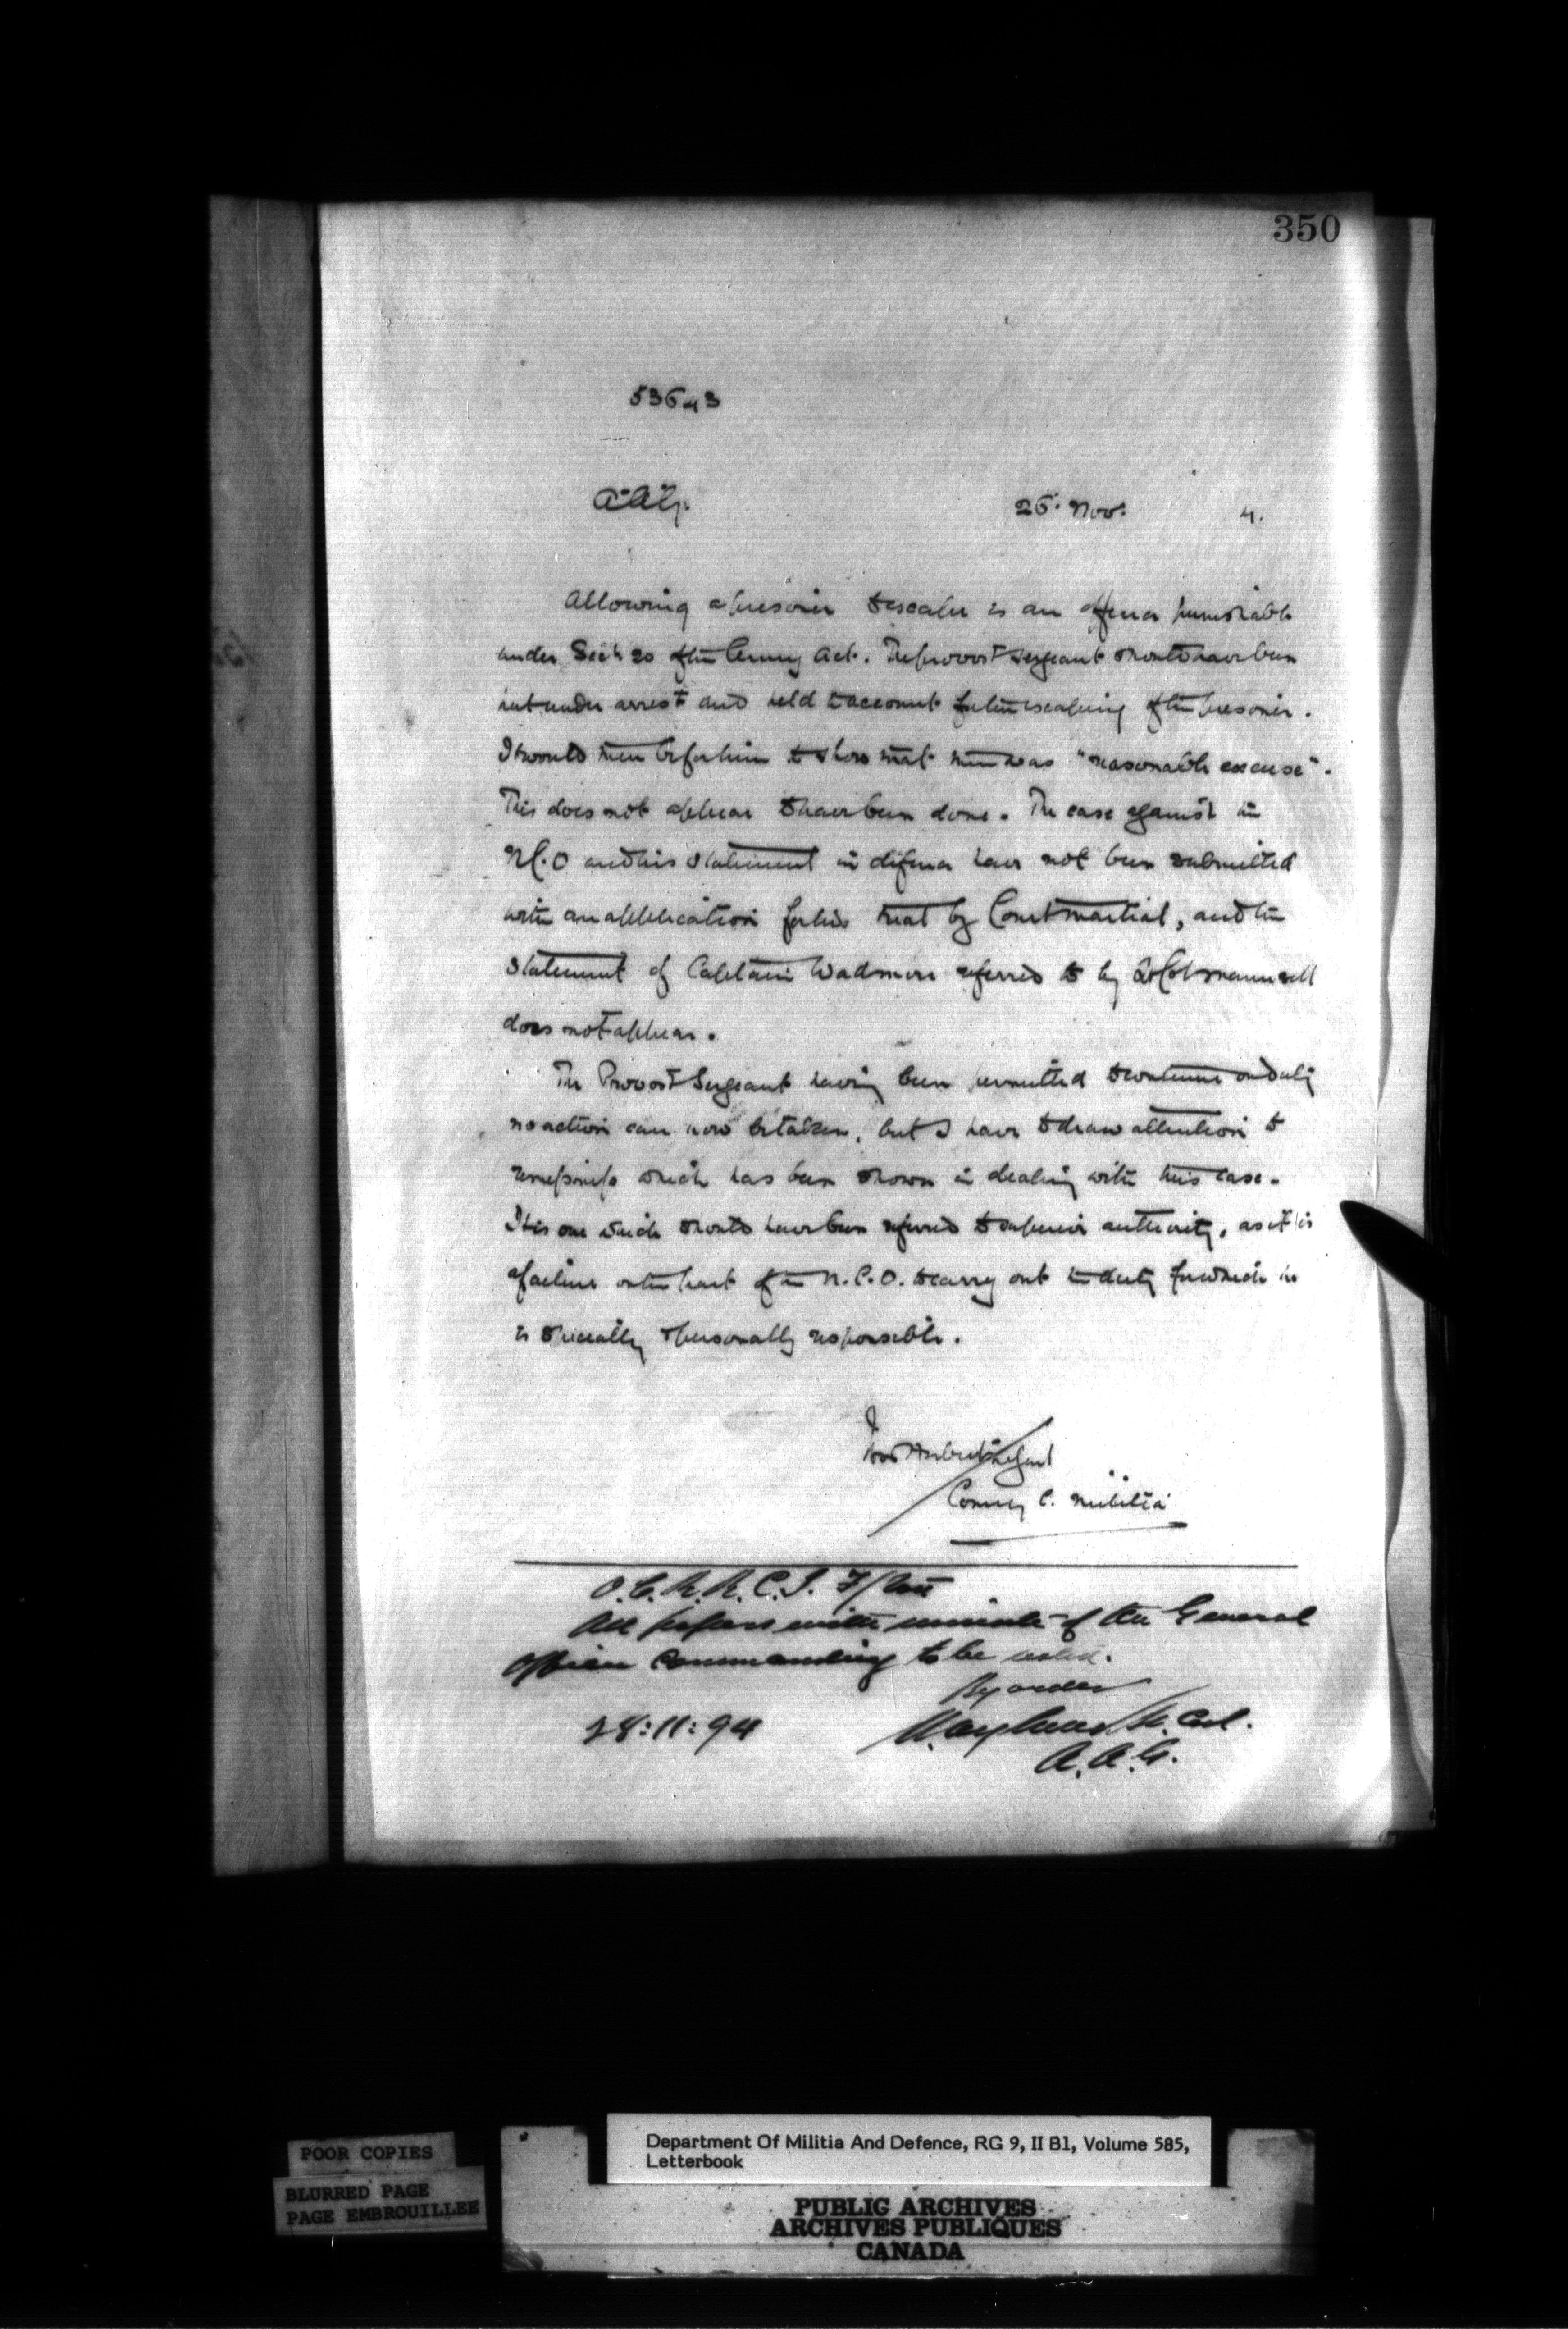 350
53643
A.A.G. 26. Nov. 4.
Allowing a prisoner to escape is an offence punishable
under Sect 20 of the Army Act. The provost sergeant should have been
put under arrest and held to account for the escaping of the prisoner.
It would then be for him to show that there was "reasonable excuse".
This does not appear to have been done. The case against the
N.C.O and his statement in defence have not been submitted
with an application for his trial by Court martial, and the
statement of Captain Wadmore referred to by Lt Col Maunsell
does not appear.
The Provost Sergeant having been permitted to continue on duty
no action can now be taken, but I have to draw attention to
remissness which has been shown in dealing with this case.
It is one which should have been referred to superior authority, as it is
a failure on the part of the N.C.O. to carry out the duty for which he
is specially & personally responsible.
Ivor Herbert
Comg C. Militia
O.C. R.R.C.I. F/ton
All papers with minute of the General
Officer Commanding to be noted.
By order
28:11:94 Lt. Col.
A.A.G.
POOR COPIES
BLURRED PAGE
PAGE EMBROUILLEE
Department Of Militia And Defence, RG 9, II B1, Volume 585,
Letterbook
PUBLIC ARCHIVES
ARCHIVES PUBLIQUES
CANADA